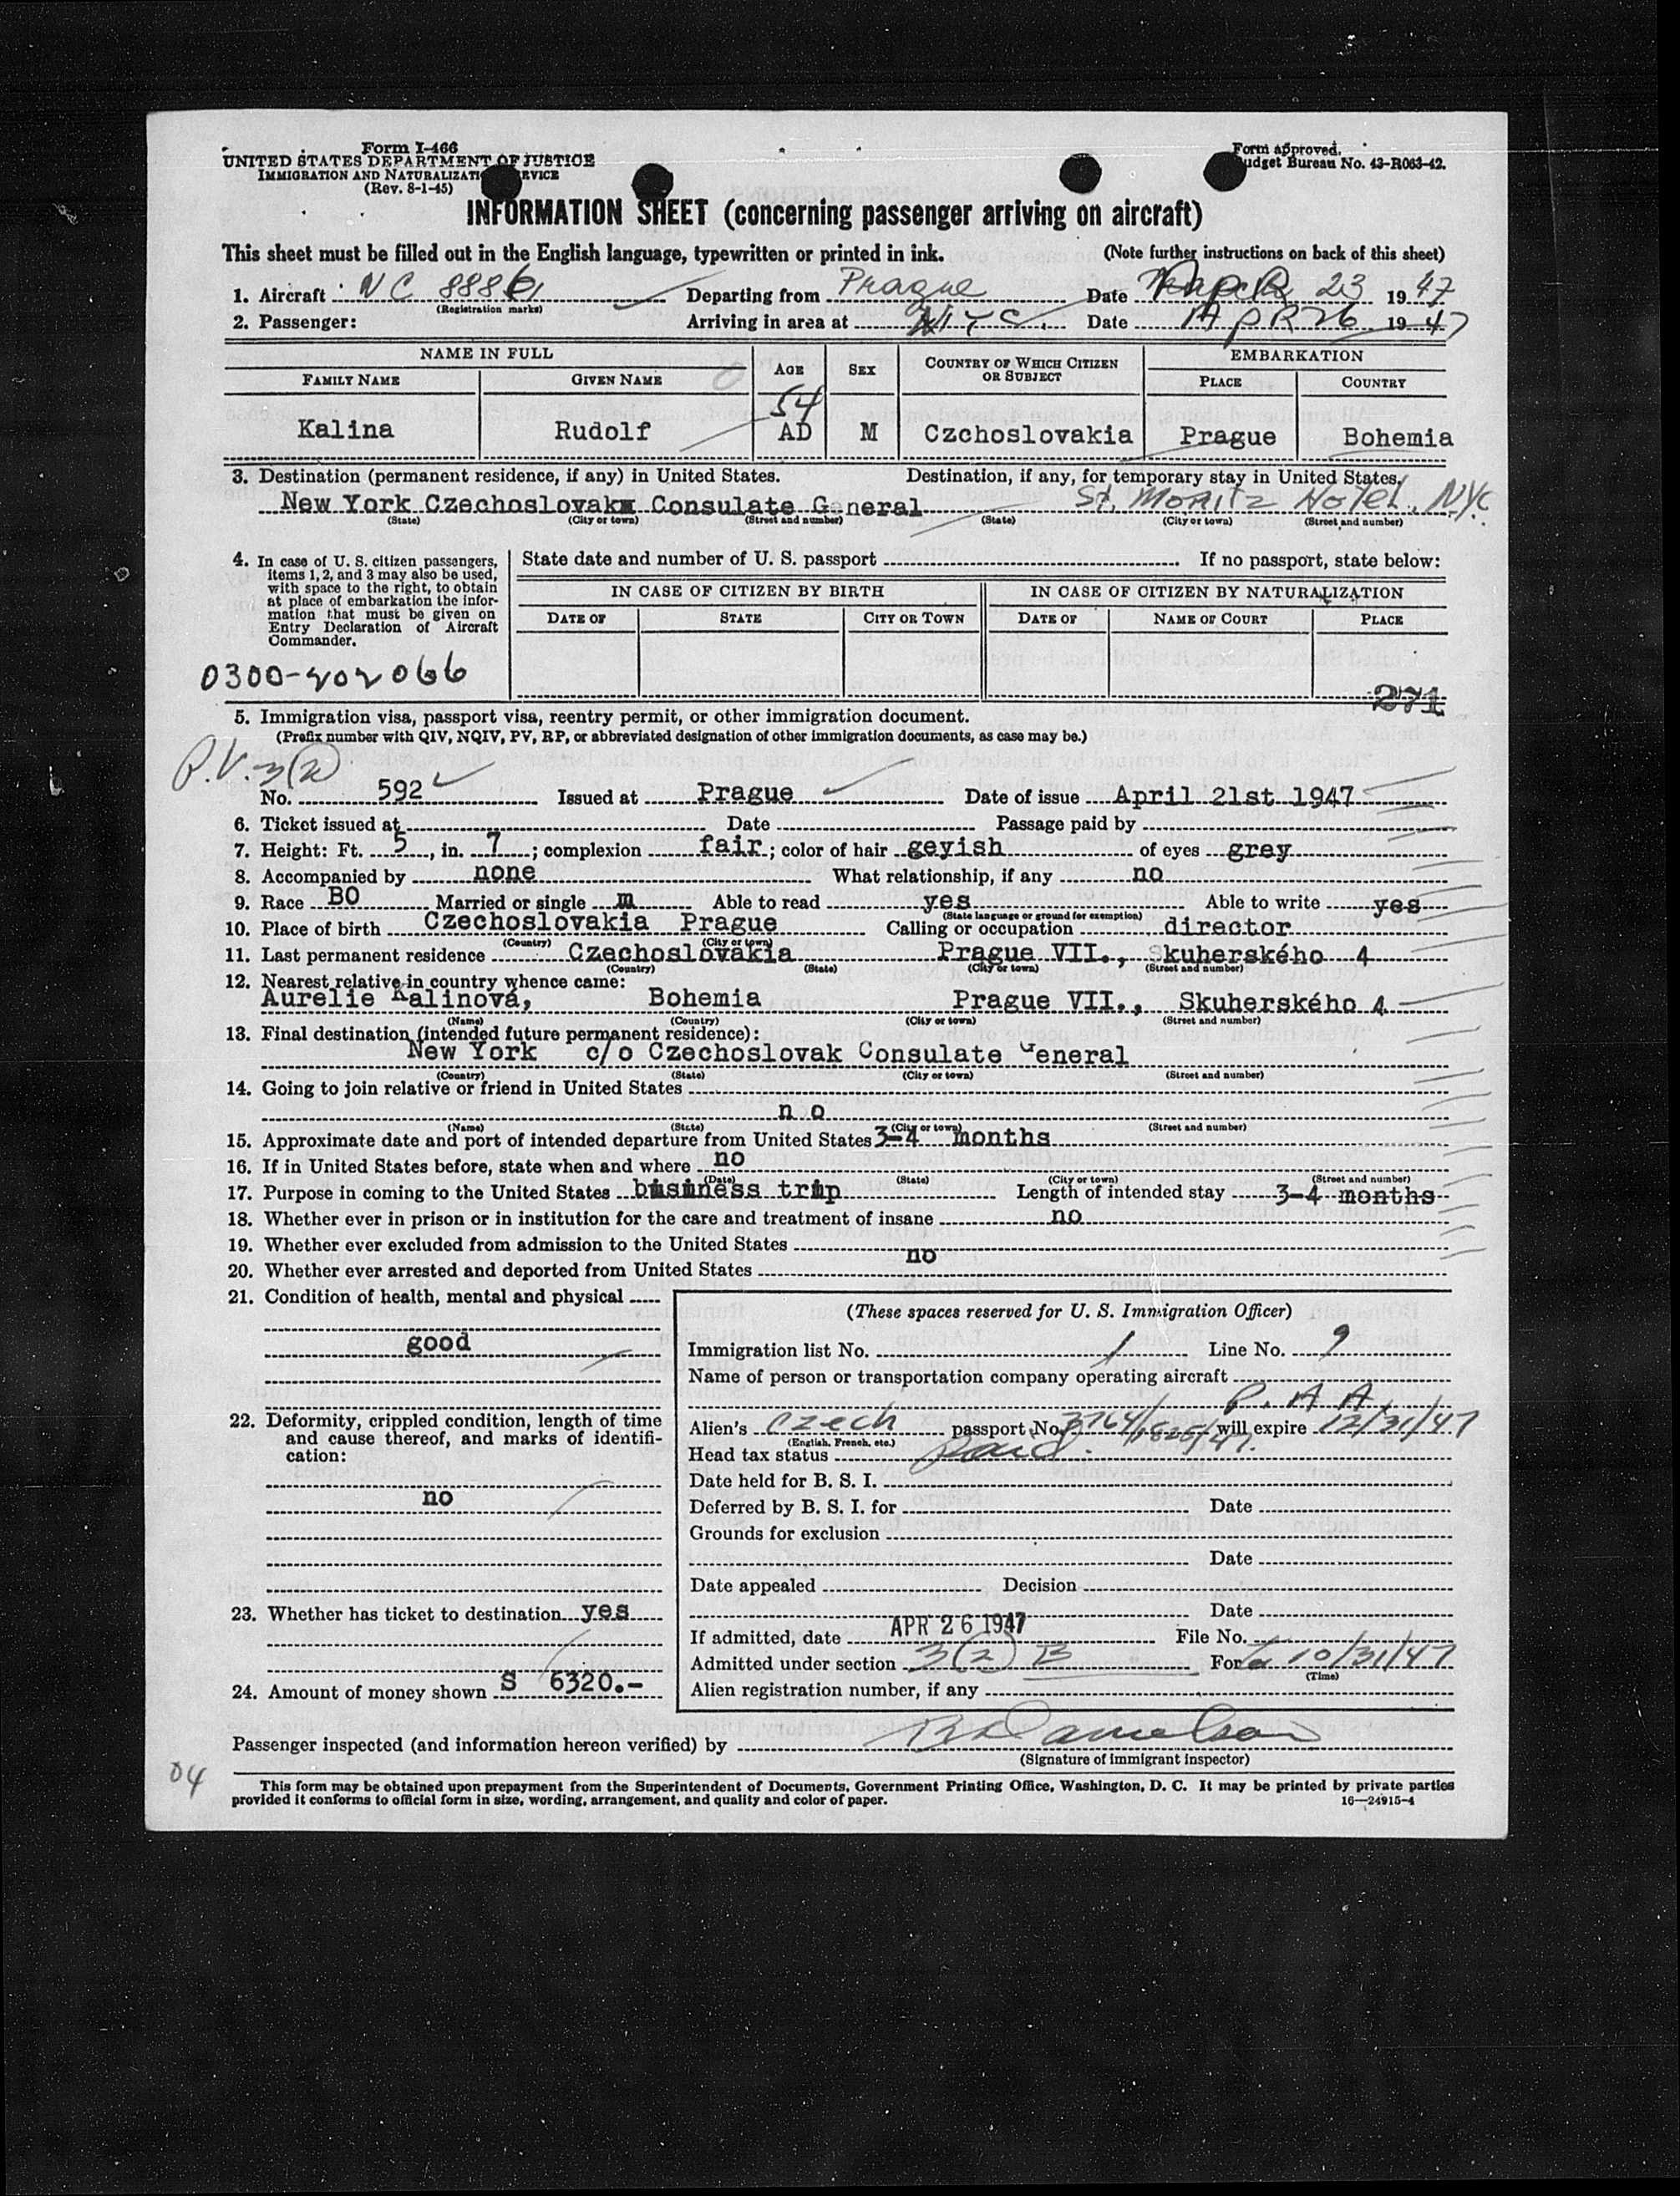 Form I-466
UNITED STATES DEPARTMENT OF JUSTICE
IMMIGRATION AND NATURALIZATI RVICE
(Rev. 8-1-45)
Form approved.
udget Bureau No. 43-R063-42.
INFORMATION SHEET (concerning passenger arriving on aircraft)
This sheet must be filled out in the English language, typewritten or printed in ink. (Note further instructions on back of this sheet)
1. Aircraft NC 8886 Departing from Prague Date 23 1947
(Registration marks)
2. Passenger: Arriving in area at N.Y.C. Date APR 26 1947
NAME IN FULL AGE SEX COUNTRY OF WHICH CITIZEN OR SUBJECT EMBARKATION
FAMILY NAME GIVEN NAME PLACE COUNTRY
54
Kalina Rudolf AD M Czchoslovakia Prague Bohemia
3. Destination (permanent residence, if any) in United States. Destination, if any, for temporary stay in United States.
New York Czechoslovakx Consulate General St. Moritz Hotel. NYC
(State) (City or town) (Street and number) (State) (City or town) (Street and number)
4. In case of U. S. citizen passengers,
items 1, 2, and 3 may also be used,
with space to the right, to obtain
at place of embarkation the infor-
mation that must be given on
Entry Declaration of Aircraft
Commander.
State date and number of U. S. passport If no passport, state below:
IN CASE OF CITIZEN BY BIRTH IN CASE OF CITIZEN BY NATURALIZATION
DATE OF STATE CITY OR TOWN DATE OF NAME OF COURT PLACE
0300-202066
271
5. Immigration visa, passport visa, reentry permit, or other immigration document.
(Prefix number with QIV, NQIV, PV, RP, or abbreviated designation of other immigration documents, as case may be.)
P.V. 3(2)
No. 592 Issued at Prague Date of issue April 21st 1947
6. Ticket issued at Date Passage paid by
7. Height: Ft. 5, in. 7; complexion fair; color of hair geyish of eyes grey
8. Accompanied by none What relationship, if any no
9. Race BO Married or single m Able to read yes Able to write yes
(State language or ground for exemption)
10. Place of birth Czechoslovakia Prague Calling or occupation director
(Country) (City or town)
11. Last permanent residence Czechoslovakia Prague VII., Skuherského 4
(Country) (State) (City or town) (Street and number)
12. Nearest relative in country whence came:
Aurelie Kalinová, Bohemia Prague VII., Skuherského 4
(Name) (Country) (City or town) (Street and number)
13. Final destination (intended future permanent residence):
New York c/o Czechoslovak Consulate General
(Country) (State) (City or town) (Street and number)
14. Going to join relative or friend in United States
n o
(Name) (State) (City or town) (Street and number)
15. Approximate date and port of intended departure from United States 3-4 months
16. If in United States before, state when and where no
(Date) (State) (City or town) (Street and number)
17. Purpose in coming to the United States business trip Length of intended stay 3-4 months
18. Whether ever in prison or in institution for the care and treatment of insane no
19. Whether ever excluded from admission to the United States
no
20. Whether ever arrested and deported from United States
21. Condition of health, mental and physical
good
22. Deformity, crippled condition, length of time
and cause thereof, and marks of identifi-
cation:
no
23. Whether has ticket to destination yes
24. Amount of money shown S 6320.-
(These spaces reserved for U. S. Immigration Officer)
Immigration list No. 1 Line No. 9
Name of person or transportation company operating aircraft
P. A A.
Alien's Czech passport No. 3764/1825/47. will expire 12/31/47
(English, French, etc.)
Head tax status Paid.
Date held for B. S. I.
Deferred by B. S. I. for Date
Grounds for exclusion
Date
Date appealed Decision
Date
If admitted, date APR 26 1947 File No.
Admitted under section 3(2) B For to 10/31/47
(Time)
Alien registration number, if any
Passenger inspected (and information hereon verified) by Danielson
(Signature of immigrant inspector)
04
This form may be obtained upon prepayment from the Superintendent of Documents, Government Printing Office, Washington, D. C. It may be printed by private parties
provided it conforms to official form in size, wording, arrangement, and quality and color of paper. 16—24915-4